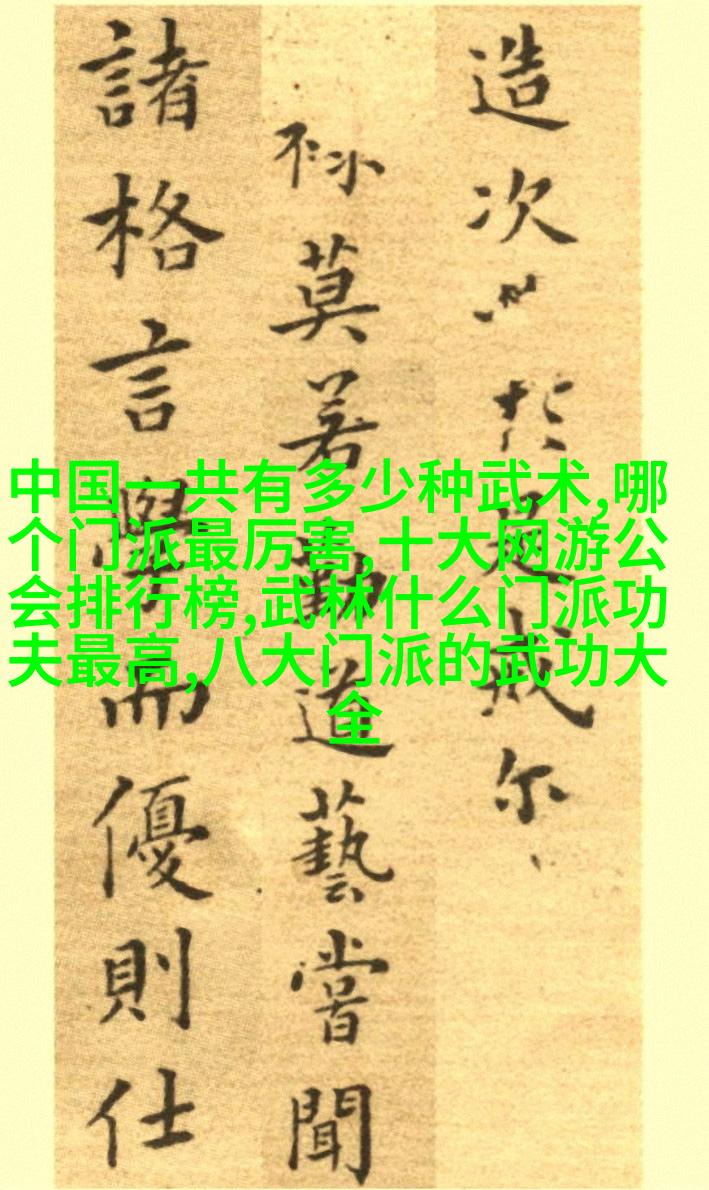 造次於是戒尔
莫若勤道藝嘗聞
諸格言學而優則仕
中国一共有多少种武术,哪
个门派最厉害,十大网游公
会排行榜,武林什么门派功
夫最高,八大门派的武功大
全